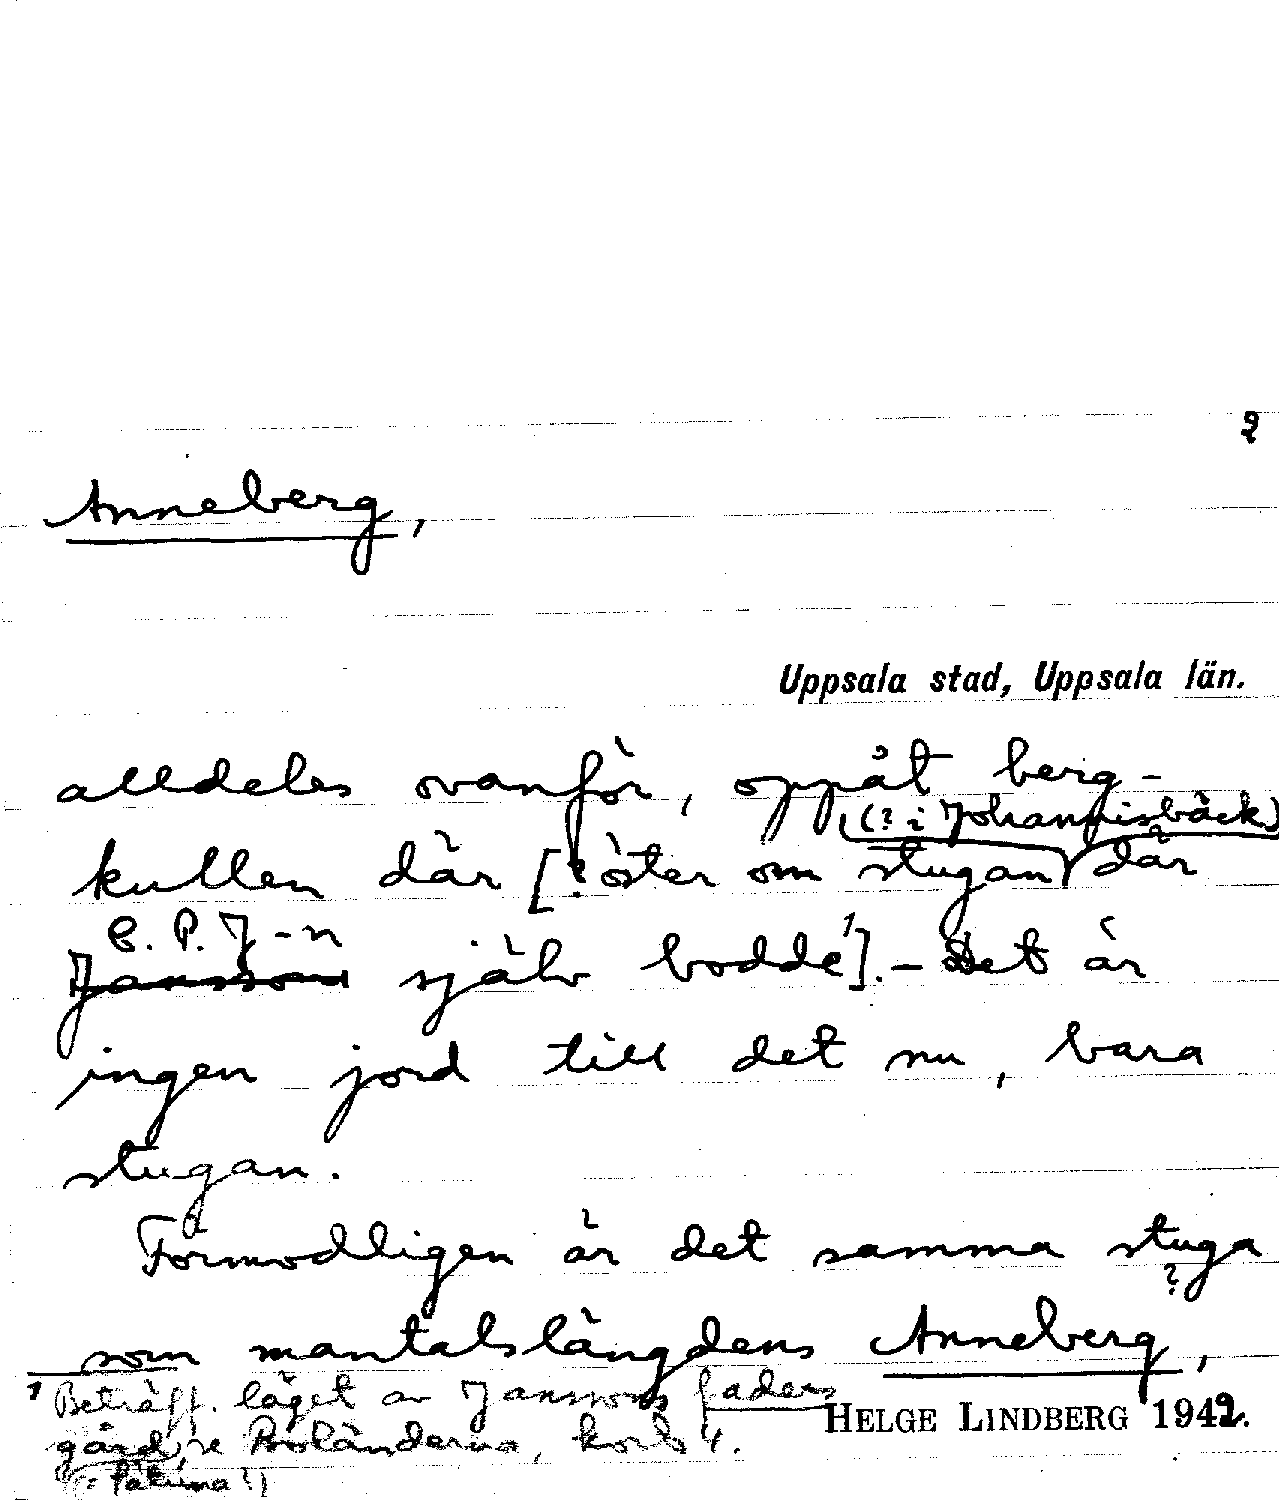 2
Anneberg,
Uppsala stad, Uppsala län.
alldeles ovanför, oppåt berg-
(? i Johannisbäck)
kullen där [? öster om stugan där
C. P. J-n
Jansson själv bodde¹]. – Det är
ingen jord till det nu, bara
stugan.
Förmodligen är det samma stuga
som mantalslängdens Anneberg,?
¹ Beträff. läget av Janssons faders
gård, se Boländerna, kort 4.
HELGE LINDBERG 1942.